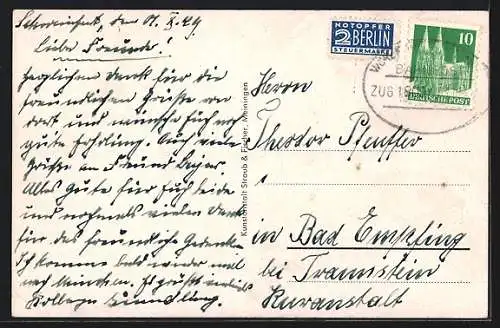 Schweinfurt, den 01. X. 49
Liebe Freunde!
Herzlichen Dank für die
freundlichen Grüße von
dort und wünsche Euch noch
gute Erholung. Auch viele
Grüße an Freund
Alles Gute für Euch beide
und nochmals vielen Dank
für das freundliche Gedenken
Ich komme bald wieder mal
nach München. Es grüßt
Kollege
Kunstanstalt Straub & Fischer, Meiningen
NOTOPFER
2 BERLIN
STEUERMARKE
10
DEUTSCHE POST
ZUG 18
Herrn
Theodor Pfeuffer
in Bad Empfing
bei Traunstein
Kuranstalt